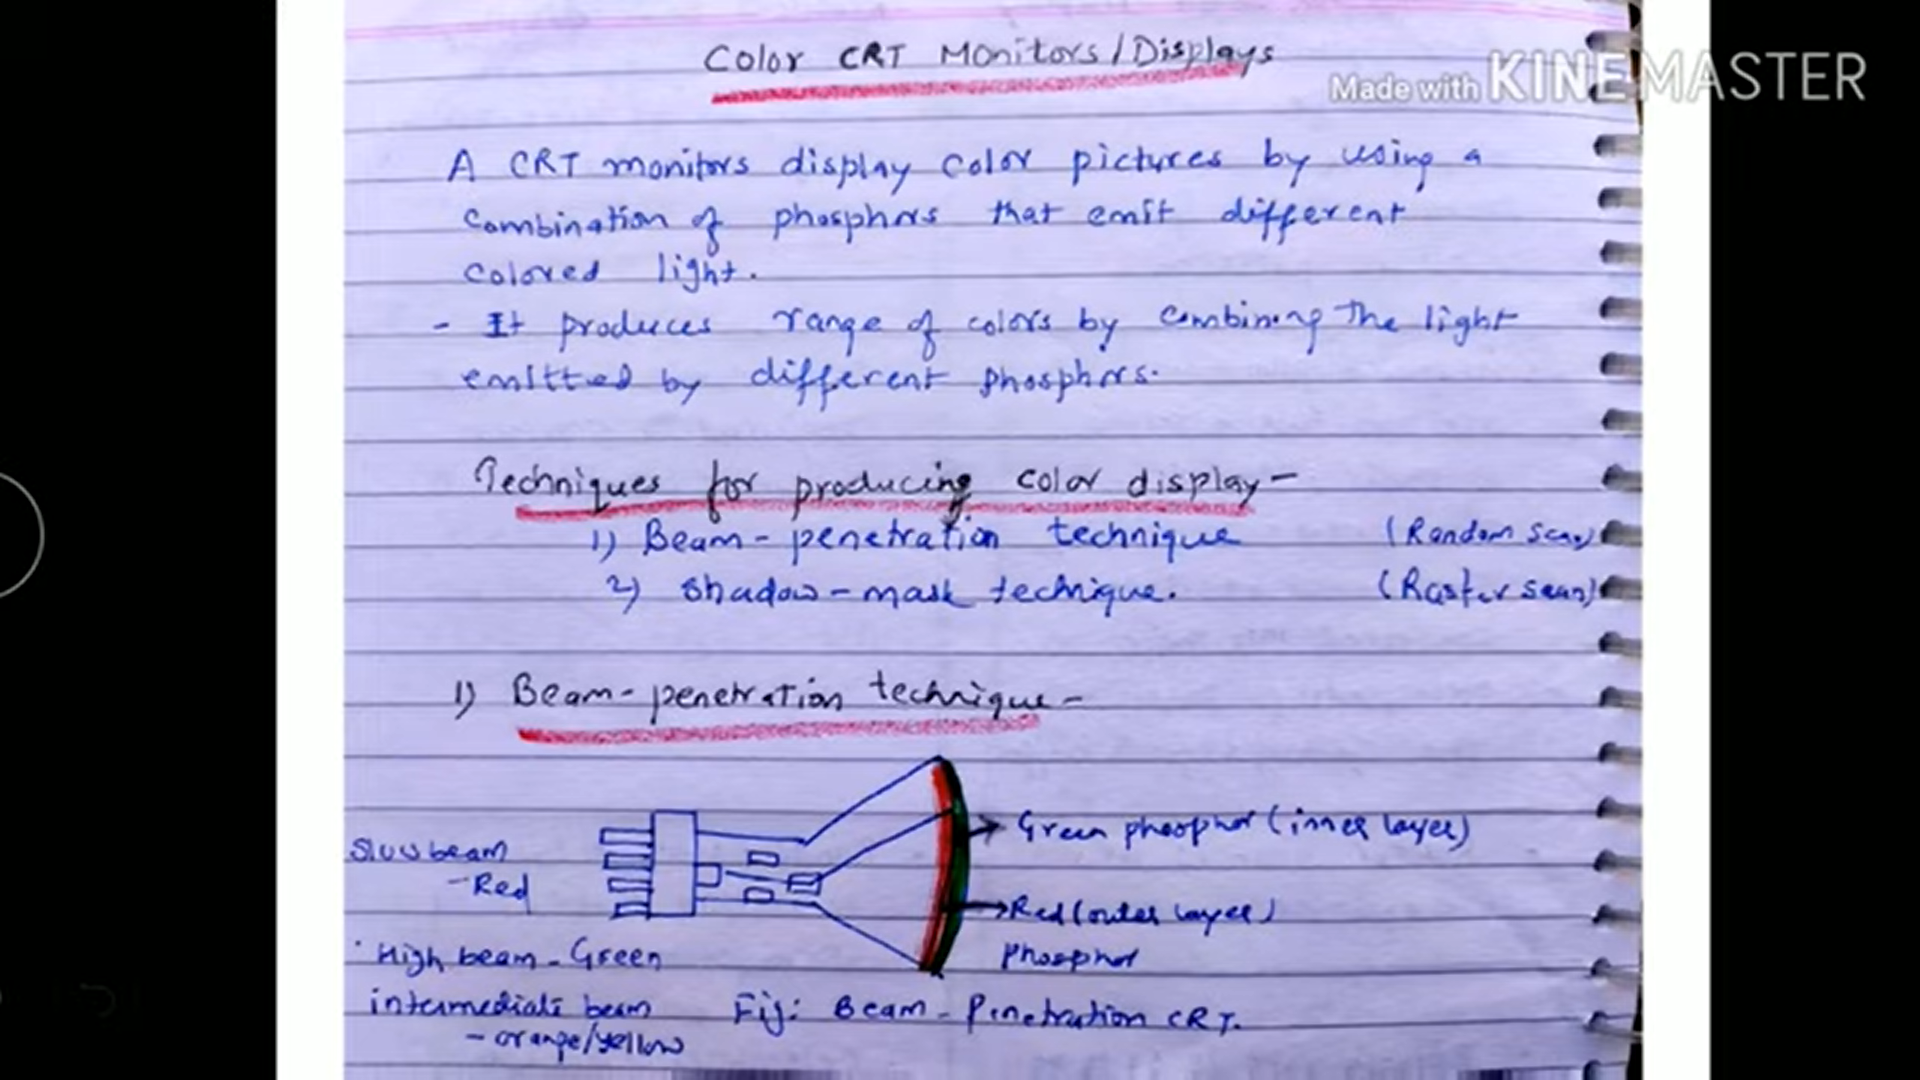 Color CRT Monitors/Displays
Made with KINEMASTER
A CRT monitors display color pictures by using a
combination of phosphors that emit different
colored light.
- It produces range of colors by combining the light
emitted by different phosphors.
Techniques for producing color display-
1) Beam-penetration technique (Random Scan)
2) Shadow-mask technique. (Raster scan)
1) Beam-penetration technique-
Green phosphor (inner layer)
Slow beam
-Red
Red (outer layer)
phosphor
High beam - Green
intermediate beam
- orange/yellow
Fig: Beam-Penetration CRT.